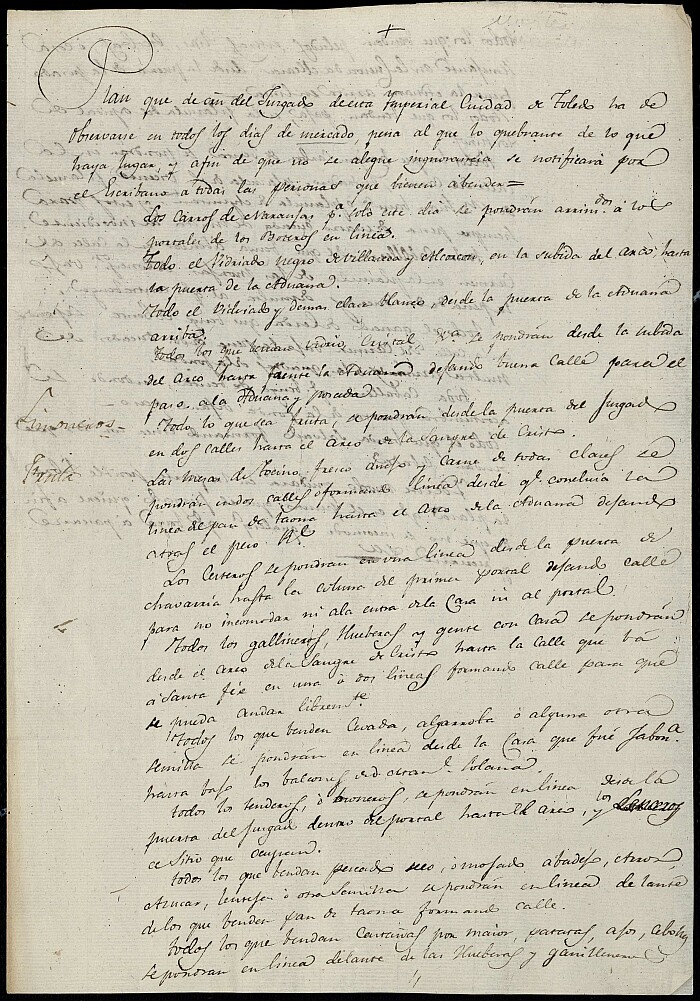 +
Plan que de orn del Juzgado de esta Ymperial Ciudad de Toledo ha de
Observarse en todos los dias de mercado, pena al que lo quebrante de lo que
haya lugar, y afin de que no se alegue ingnorancia se notificará por
el Escribano a todas las personas que bienen à bender=
Dos Carros de Naranjas pa. solo este dia se pondrán arrimdos à los
portales de los Boteros en linea.
Todo el Vidriado negro de Villaseca y Alcorcon, en la subida del Arco, hasta
la puerta de la Aduana.
Todo el Vidriado y demas clase blanco, desde la puerta de la Aduana
arriba.
Todos los que bendan Vidrio, Cristal &a. se pondrán desde la subida
del Arco hasta frente la Aduana dejando buena calle para el
paso a la Aduana y posada
Limoneros=
Todo lo que sea fruta, se pondrán desde la puerta del Juzgado
en dos calles hasta el Arco de la Sangre de Cristo.
Las mesas de Tocino fresco añejo y Carne de todas clases se
pondrán en dos calles o formando linea desde qe. concluia la
linea del pan de taona hasta el Arco de la Aduana dejando
atras el peso Rl.
Los Cesteros se pondran en una linea desde la puerta de
chavarria hasta la coluna del primer portal dejando calle
para no incomodar ni ala entra de la Casa ni al portal.
Todos los gallineros, Hueberas, y gente con Caza se pondrán
desde el Arco de la Sangre de Cristo hasta la Calle que bá
à Santa fee en una ò dos lineas formando calle para que
se pueda andar libremte.
Todos los que benden Cevada, algarroba ò alguna otra
semilla se pondrán en linea desde la Casa que fué Jabona.
hasta bajo los balcones de d.
todos los tenderos, ò se pondran en linea desde la
puerta del Juzgado dentro del portal hasta el Arco, y los
ce Sitio que ocupan.
todos los que bendan pescado seco, ò mojado abadejo, Arroz,
Azucar, lentejas ò otra Semilla se pondrán en linea delante
de los que benden pan de taona formando calle.
todos los que bendan Castañas por maior, patatas, ajos, cebollas
se pondran en linea delante de las Hueberas y gallineros